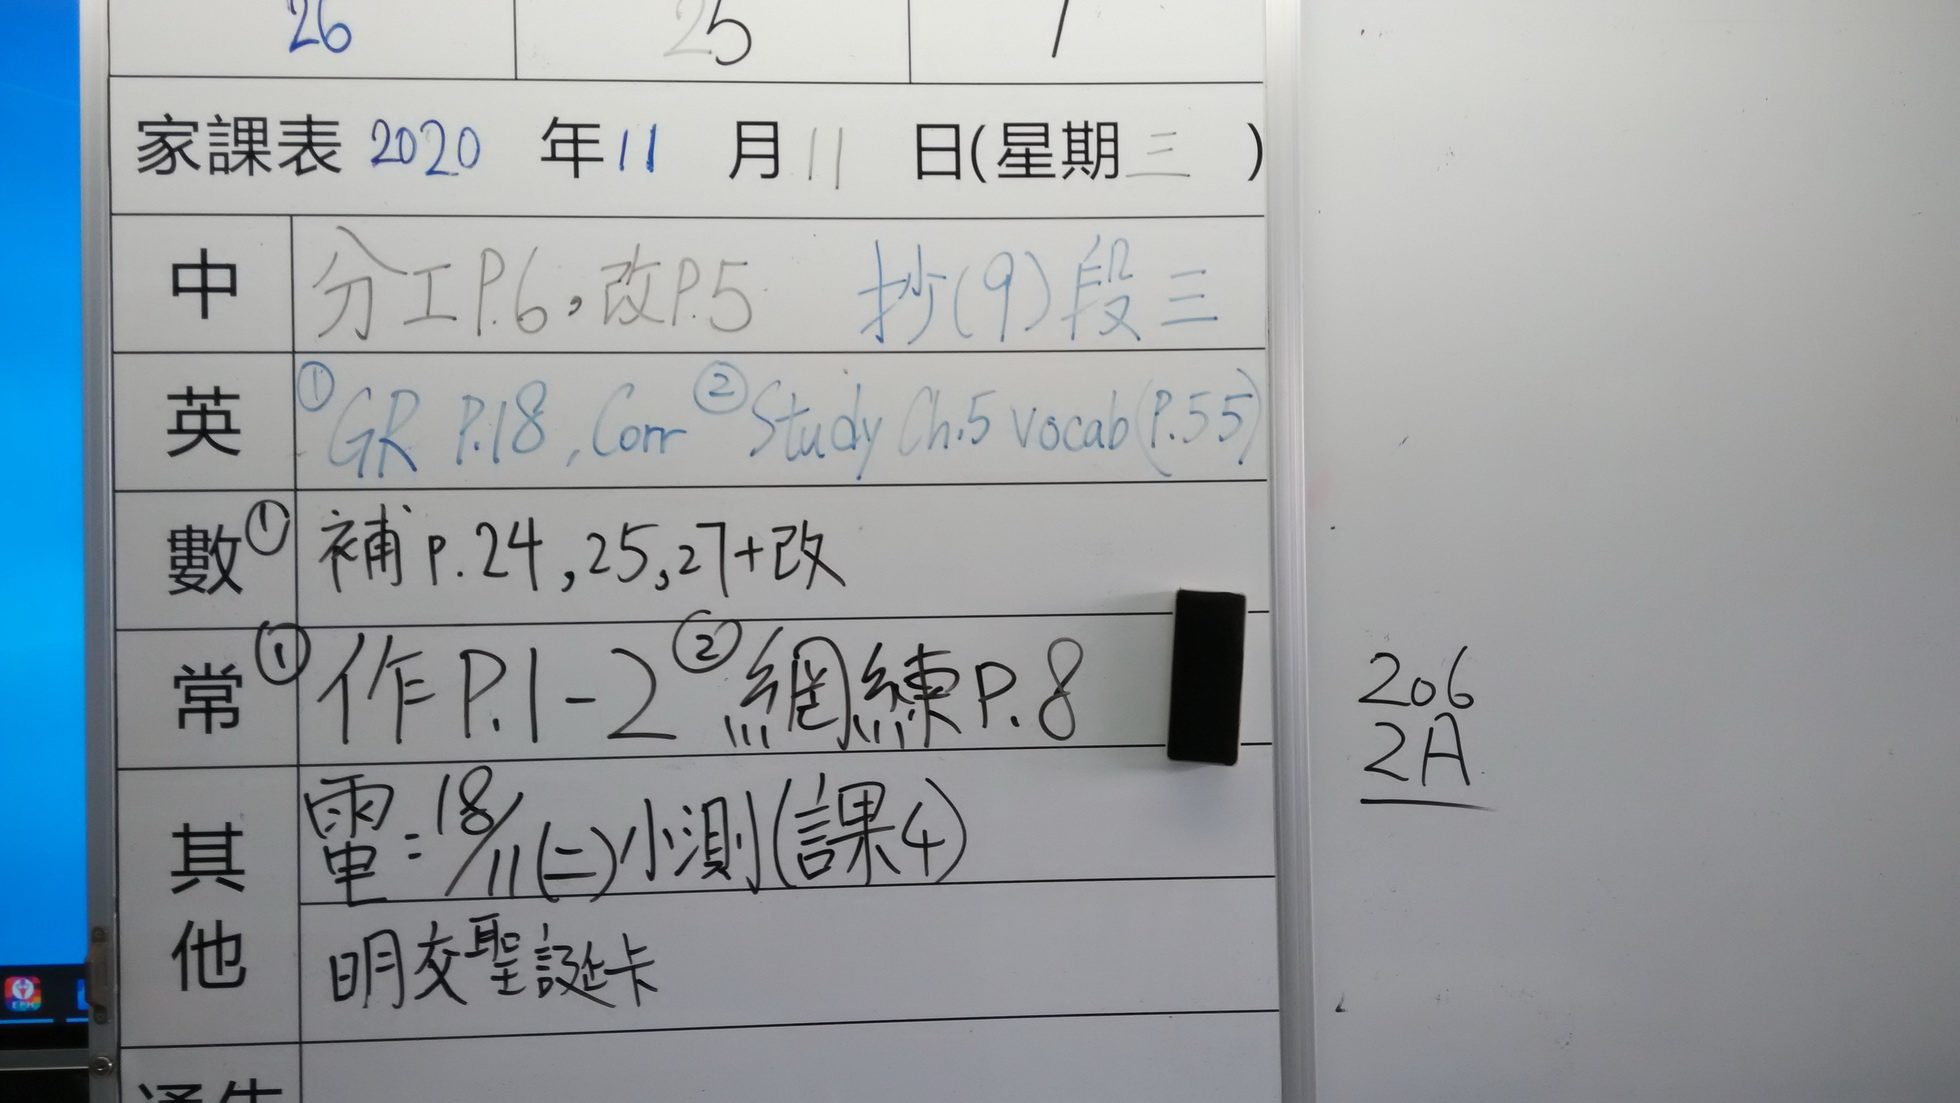 26 25 1
家課表 2020 年 11 月 11 日(星期三)
中 分工P.6，改P.5 抄(9)段三
英 ①GR P.18, Corr ②Study Ch.5 vocab(P.55)
數 ① 補 p.24,25,27+改
常 ① 作P.1-2 ②網練P.8
其他 電:18/11(二)小測(課4)
明交聖誕卡
206
2A